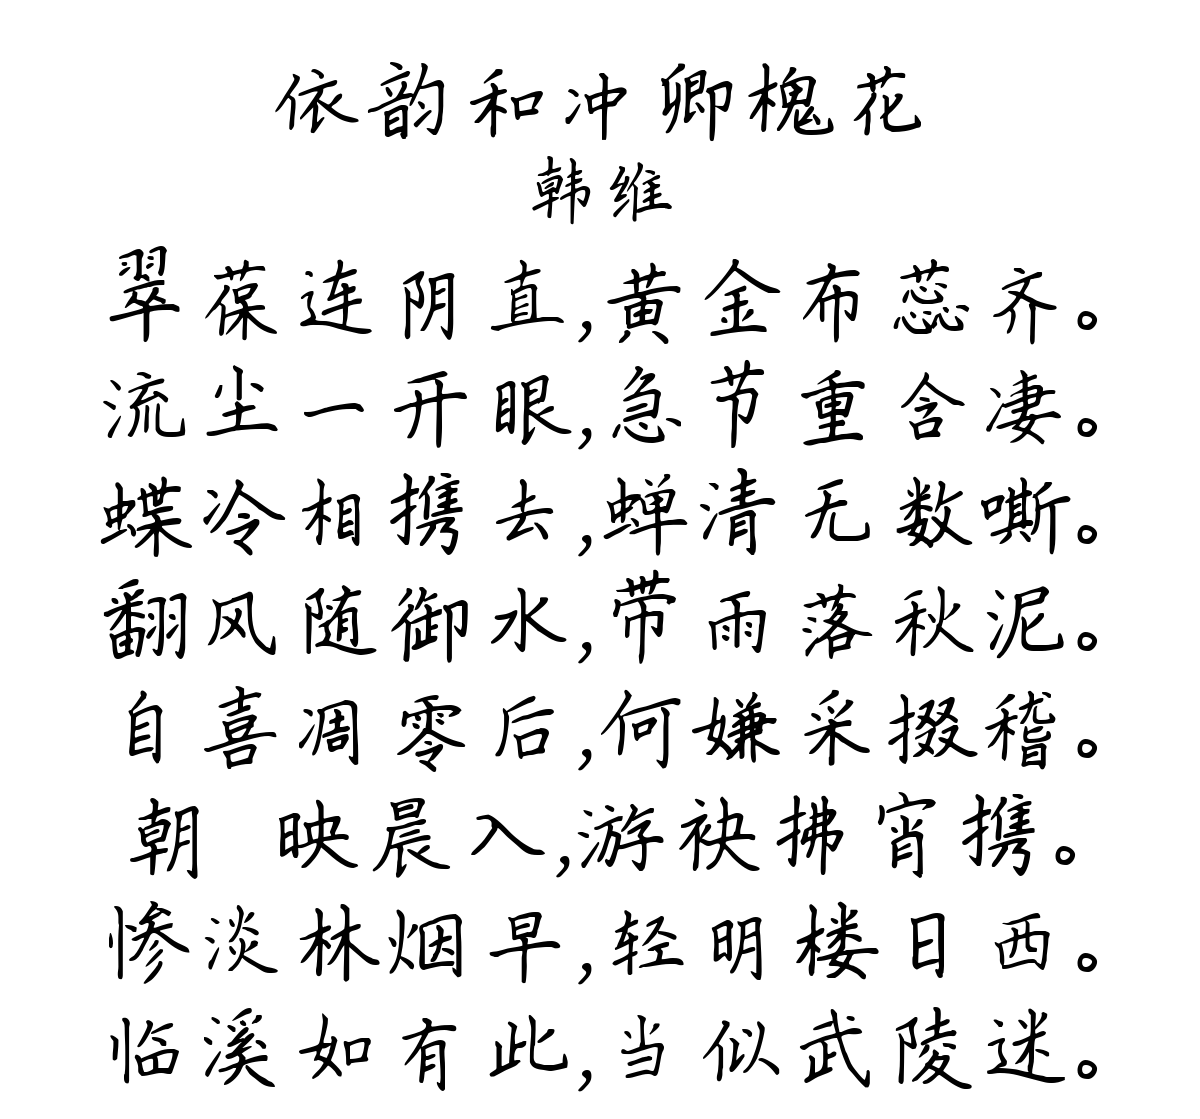 依韵和冲卿槐花
韩维
翠葆连阴直,黄金布蕊齐。
流尘一开眼,急节重含凄。
蝶冷相携去,蝉清无数嘶。
翻风随御水,带雨落秋泥。
自喜凋零后,何嫌采掇稽。
朝 映晨入,游袂拂宵携。
惨淡林烟早,轻明楼日西。
临溪如有此,当似武陵迷。